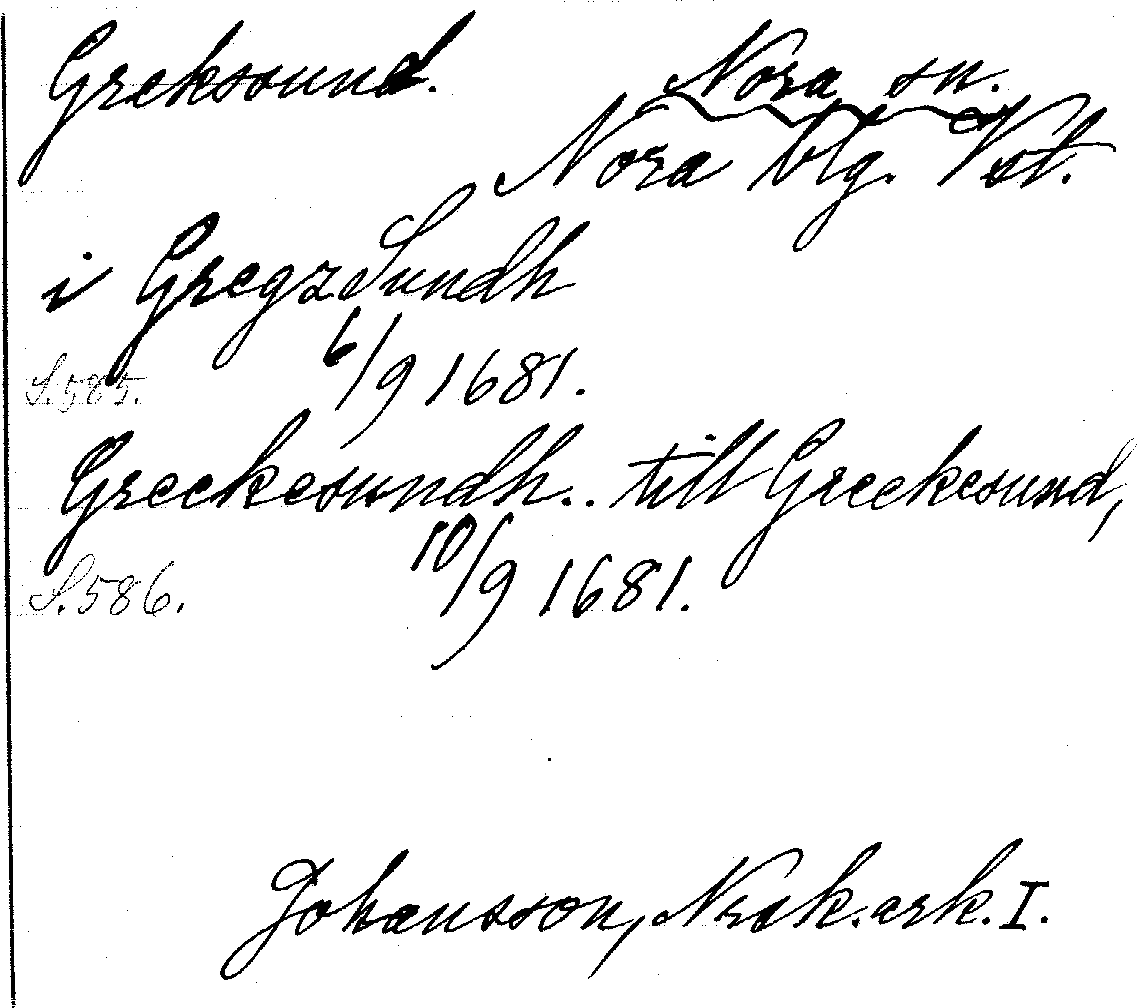 Greksund. Nora sn.
Nora blg. Vst.
i Gregz Sundh
S. 585. 6/9 1681.
Greekesundh.. till Greekesund,
S. 586. 10/9 1681.
Johansson, Norak. ark. I.